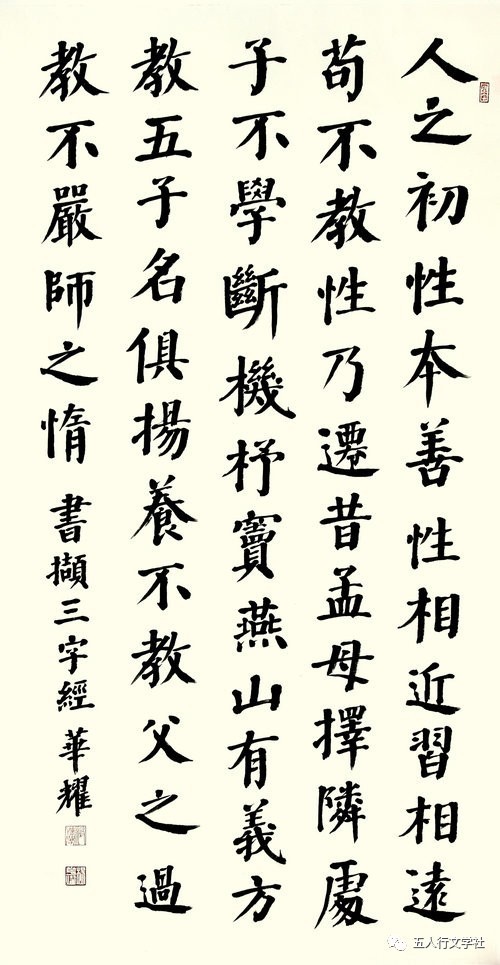 人之初性本善性相近習相遠
苟不教性乃遷昔孟母擇隣處
子不學斷機杼竇燕山有義方
教五子名俱揚養不教父之過
教不嚴師之惰 書擷三字經 華耀
五人行文学社